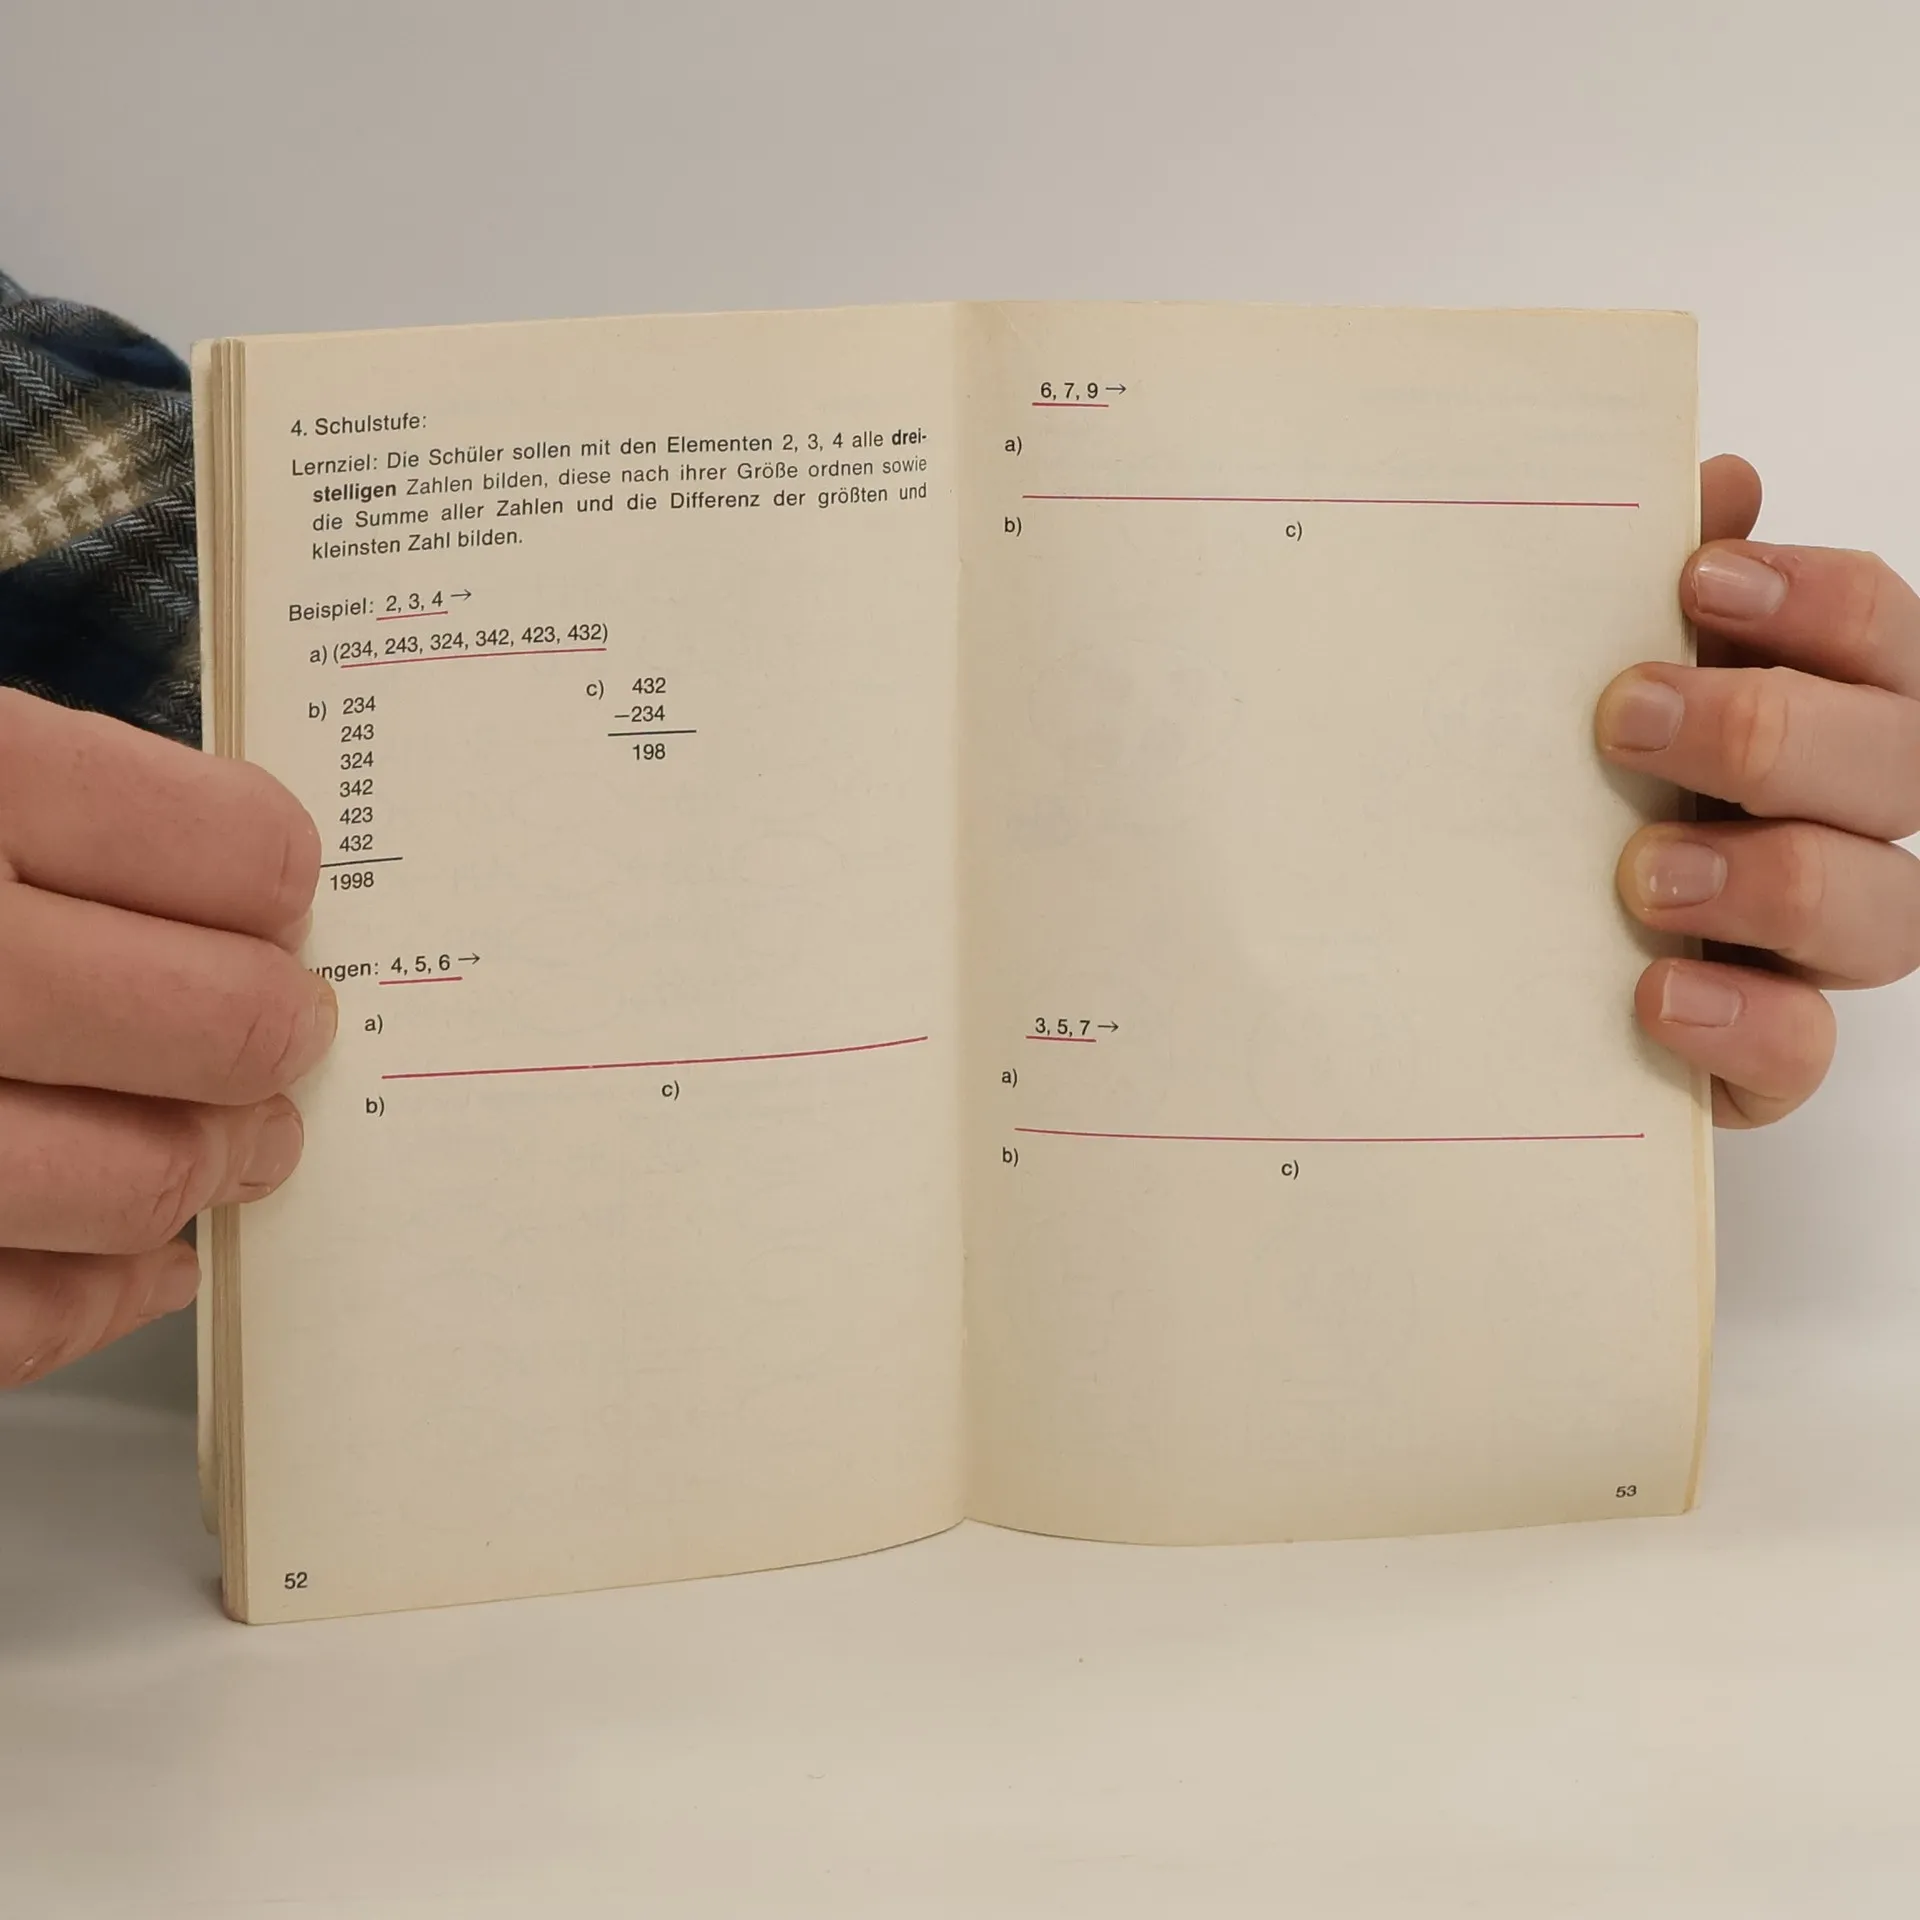 4. Schulstufe:
Lernziel: Die Schüler sollen mit den Elementen 2, 3, 4 alle drei-
stelligen Zahlen bilden, diese nach ihrer Größe ordnen sowie
die Summe aller Zahlen und die Differenz der größten und
kleinsten Zahl bilden.
Beispiel: 2, 3, 4 →
a) (234, 243, 324, 342, 423, 432)
b) 234
243
324
342
423
432
1998
c) 432
−234
198
ungen: 4, 5, 6 →
a)
b)
c)
52
6, 7, 9 →
a)
b)
c)
3, 5, 7 →
a)
b)
c)
53